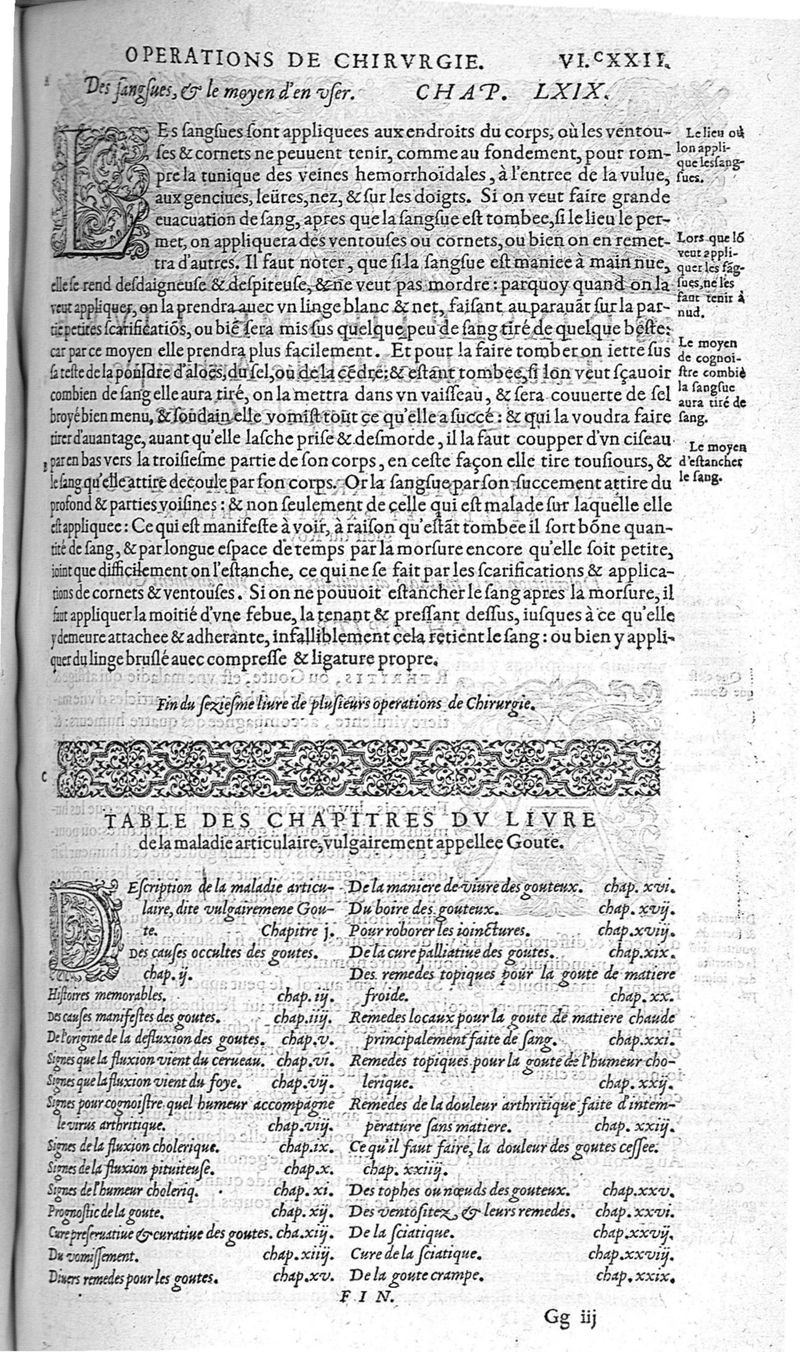 OPERATIONS DE CHIRVRGIE. VI.CXXII.
Des sangsues, & le moyen d'en vser. CHAP. LXIX.
LEs sangsues sont appliquees aux endroits du corps, où les ventou-
ses & cornets ne peuuent tenir, comme au fondement, pour rom-
pre la tunique des veines hemorrhoïdales, à l'entree de la vulue,
aux genciues, leûres, nez, & sur les doigts. Si on veut faire grande
euacuation de sang, apres que la sangsue est tombee, si le lieu le per-
met, on appliquera des ventouses ou cornets, ou bien on en remet-
tra d'autres. Il faut noter, que si la sangsue est maniee à main nue,
elle se rend desdaigneuse & despiteuse, & ne veut pas mordre: parquoy quand on la
veut appliquer, on la prendra auec vn linge blanc & net, faisant au parauãt sur la par-
tie petites scarificatiõs, ou biẽ sera mis sus quelque peu de sang tiré de quelque beste:
car par ce moyen elle prendra plus facilement. Et pour la faire tomber on iette sus
sa teste de la pouldre d'aloës, du sel, ou de la cẽdre: & estant tombee, si lon veut sçauoir
combien de sang elle aura tiré, on la mettra dans vn vaisseau, & sera couuerte de sel
broyé bien menu, & soudain elle vomist tout ce qu'elle a succé: & qui la voudra faire
tirer d'auantage, auant qu'elle lasche prise & desmorde, il la faut coupper d'vn ciseau
par en bas vers la troisiesme partie de son corps, en ceste façon elle tire tousiours, &
le sang qu'elle attire decoule par son corps. Or la sangsue par son succement attire du
profond & parties voisines: & non seulement de celle qui est malade sur laquelle elle
est appliquee: Ce qui est manifeste à voir, à raison qu'estãt tombee il sort bõne quan-
tité de sang, & par longue espace de temps par la morsure encore qu'elle soit petite,
ioint que difficilement on l'estanche, ce qui ne se fait par les scarifications & applica-
tions de cornets & ventouses. Si on ne pouuoit estancher le sang apres la morsure, il
faut appliquer la moitié d'vne febue, la tenant & pressant dessus, iusques à ce qu'elle
y demeure attachee & adherante, infalliblement cela retient le sang: ou bien y appli-
quer du linge bruslé auec compresse & ligature propre.
Le lieu où
lon appli-
que les sang-
sues.
Lors que lõ
veut appli-
quer les sãg-
sues, ne les
faut tenir à
nud.
Le moyen
de cognoi-
stre combiẽ
la sangsue
aura tiré de
sang.
Le moyen
d'estancher
le sang.
Fin du seziesme liure de plusieurs operations de Chirurgie.
TABLE DES CHAPITRES DV LIVRE
de la maladie articulaire, vulgairement appellee Goute.
DEscription de la maladie articu-
laire, dite vulgairemene Gou-
te. Chapitre j.
Des causes occultes des goutes.
chap. ij.
Histoires memorables. chap. iij.
Des causes manifestes des goutes. chap. iiij.
De l'origine de la defluxion des goutes. chap. v.
Signes que la fluxion vient du cerueau. chap. vi.
Signes que la fluxion vient du foye. chap. vij.
Signes pour cognoistre quel humeur accompagne
le virus arthritique. chap. viij.
Signes de la fluxion cholerique. chap. ix.
Signes de la fluxion pituiteuse. chap. x.
Signes de l'humeur choleriq. chap. xi.
Prognostic de la goute. chap. xij.
Cure preseruatiue & curatiue des goutes. cha. xiij.
Du vomissement. chap. xiiij.
Diuers remedes pour les goutes. chap. xv.
De la maniere de viure des gouteux. chap. xvi.
Du boire des gouteux. chap. xvij.
Pour roborer les ioinctures. chap. xviij.
De la cure palliatiue des goutes. chap. xix.
Des remedes topiques pour la goute de matiere
froide. chap. xx.
Remedes locaux pour la goute de matiere chaude
principalement faite de sang. chap. xxi.
Remedes topiques pour la goute de l'humeur cho-
lerique. chap. xxij.
Remedes de la douleur arthritique faite d'intem-
perature sans matiere. chap. xxiij.
Ce qu'il faut faire, la douleur des goutes cessee.
chap. xxiiij.
Des tophes ou nœuds des gouteux. chap. xxv.
Des ventositez, & leurs remedes. chap. xxvi.
De la sciatique. chap. xxvij.
Cure de la sciatique. chap. xxviij.
De la goute crampe. chap. xxix.
FIN.
Gg iij